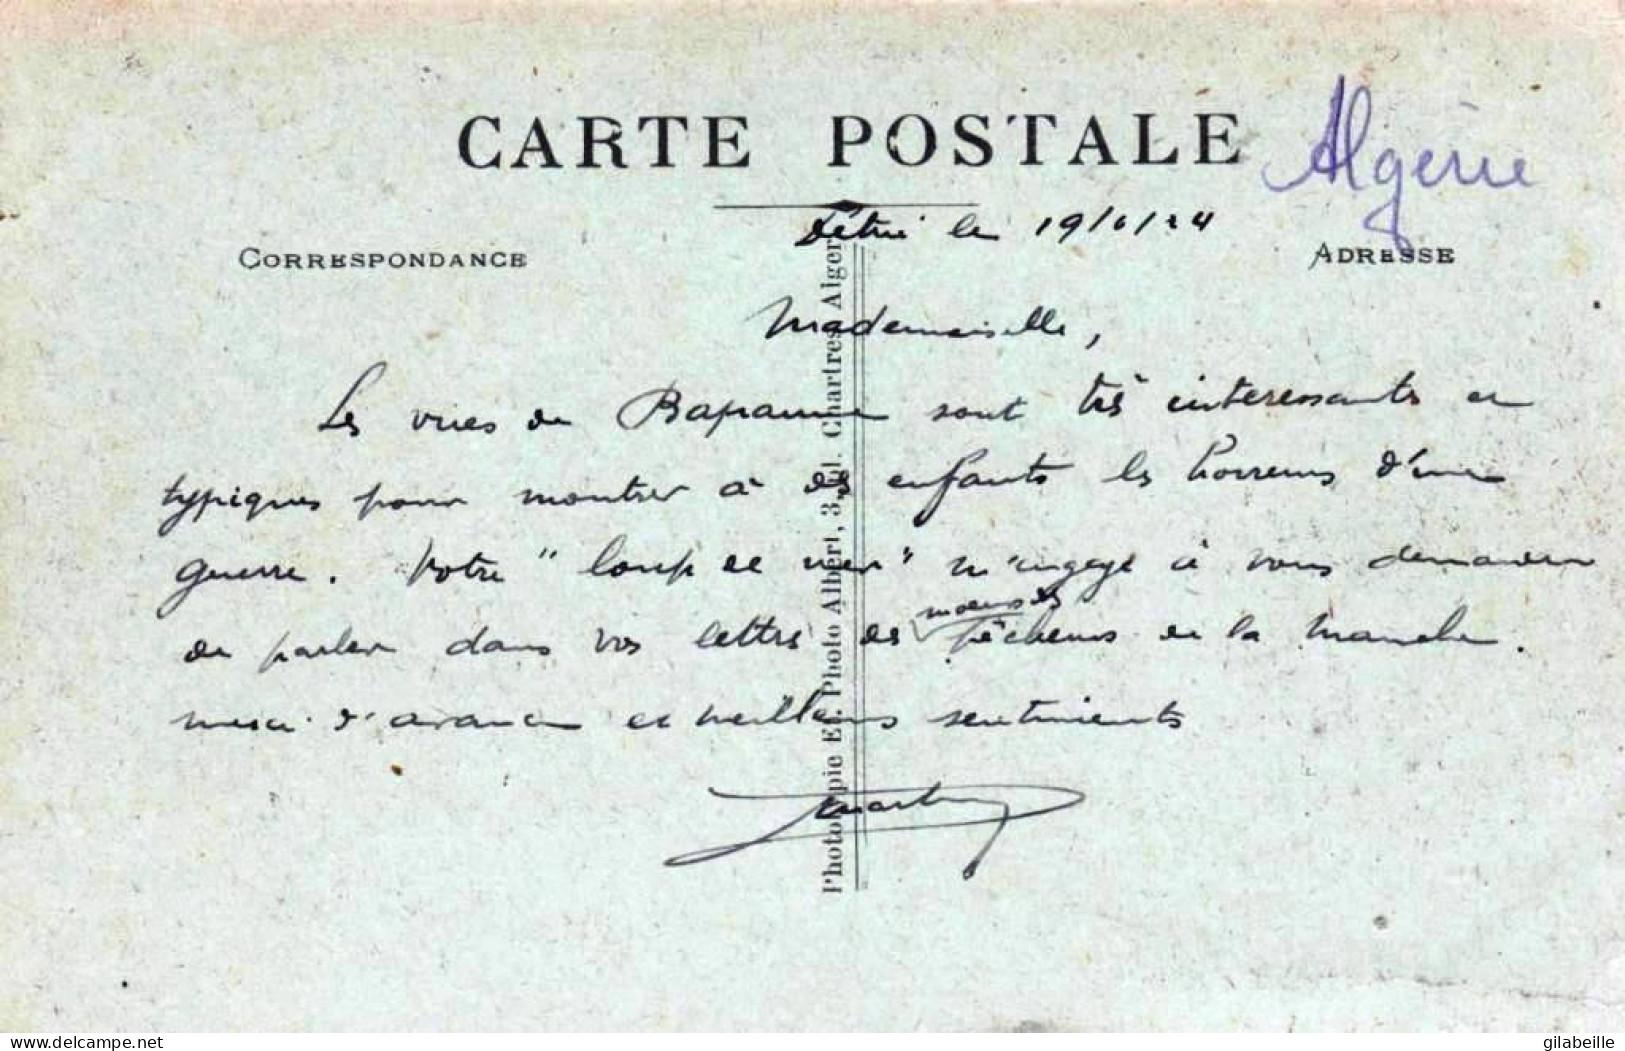 CARTE POSTALE
Algérie
Sétif le 19/6/24
CORRESPONDANCE
ADRESSE
Mademoiselle,
Les vues de Bapaume sont très interessantes et
typiques pour montrer à des enfants les horreurs d'une
guerre. Votre "loup de mer" m'engage à vous demander
de parler dans vos lettres des moeurs des pêcheurs de la Manche.
Merci d'avance et meilleurs sentiments
Phototypie Et. Photo Albert, 3, Chartres Alger
delcampe.net
gilabeille